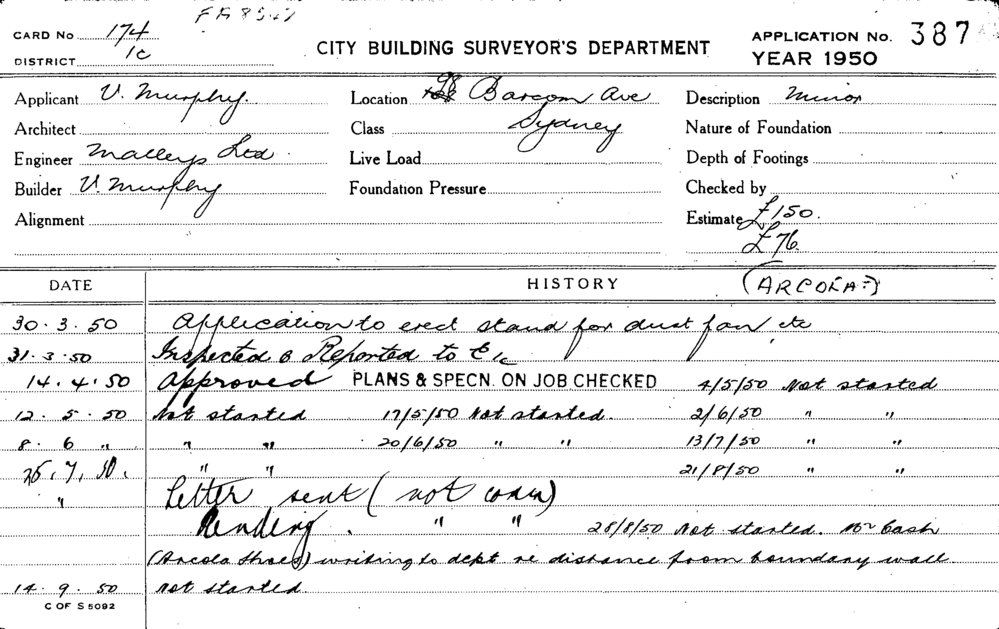 CARD No 174
DISTRICT 1c
CITY BUILDING SURVEYOR'S DEPARTMENT
APPLICATION No. 387
YEAR 1950
Applicant V. Murphy. Location 98 Barcom Ave Description Minor
Architect Class Sydney Nature of Foundation
Engineer Malleys Ltd. Live Load Depth of Footings
Builder V. Murphy Foundation Pressure Checked by
Alignment Estimate £150.
£76
DATE HISTORY (ARCOLA?)
30.3.50 Application to erect stand for dust fan etc
31.3.50 Inspected & Reported to
14.4.50 Approved PLANS & SPECN. ON JOB CHECKED 4/5/50 Not started
12.5.50 Not started 17/5/50 Not started. 2/6/50 " "
8.6 " " " 20/6/50 " " 13/7/50 " "
25.7.50. " " 21/8/50 " "
" Letter sent (not
Pending. " " 28/8/50 Not started. Mr Cash
(Arcola Shoes) writing to dept re distance from boundary wall.
14.9.50 Not started.
C OF S 5092